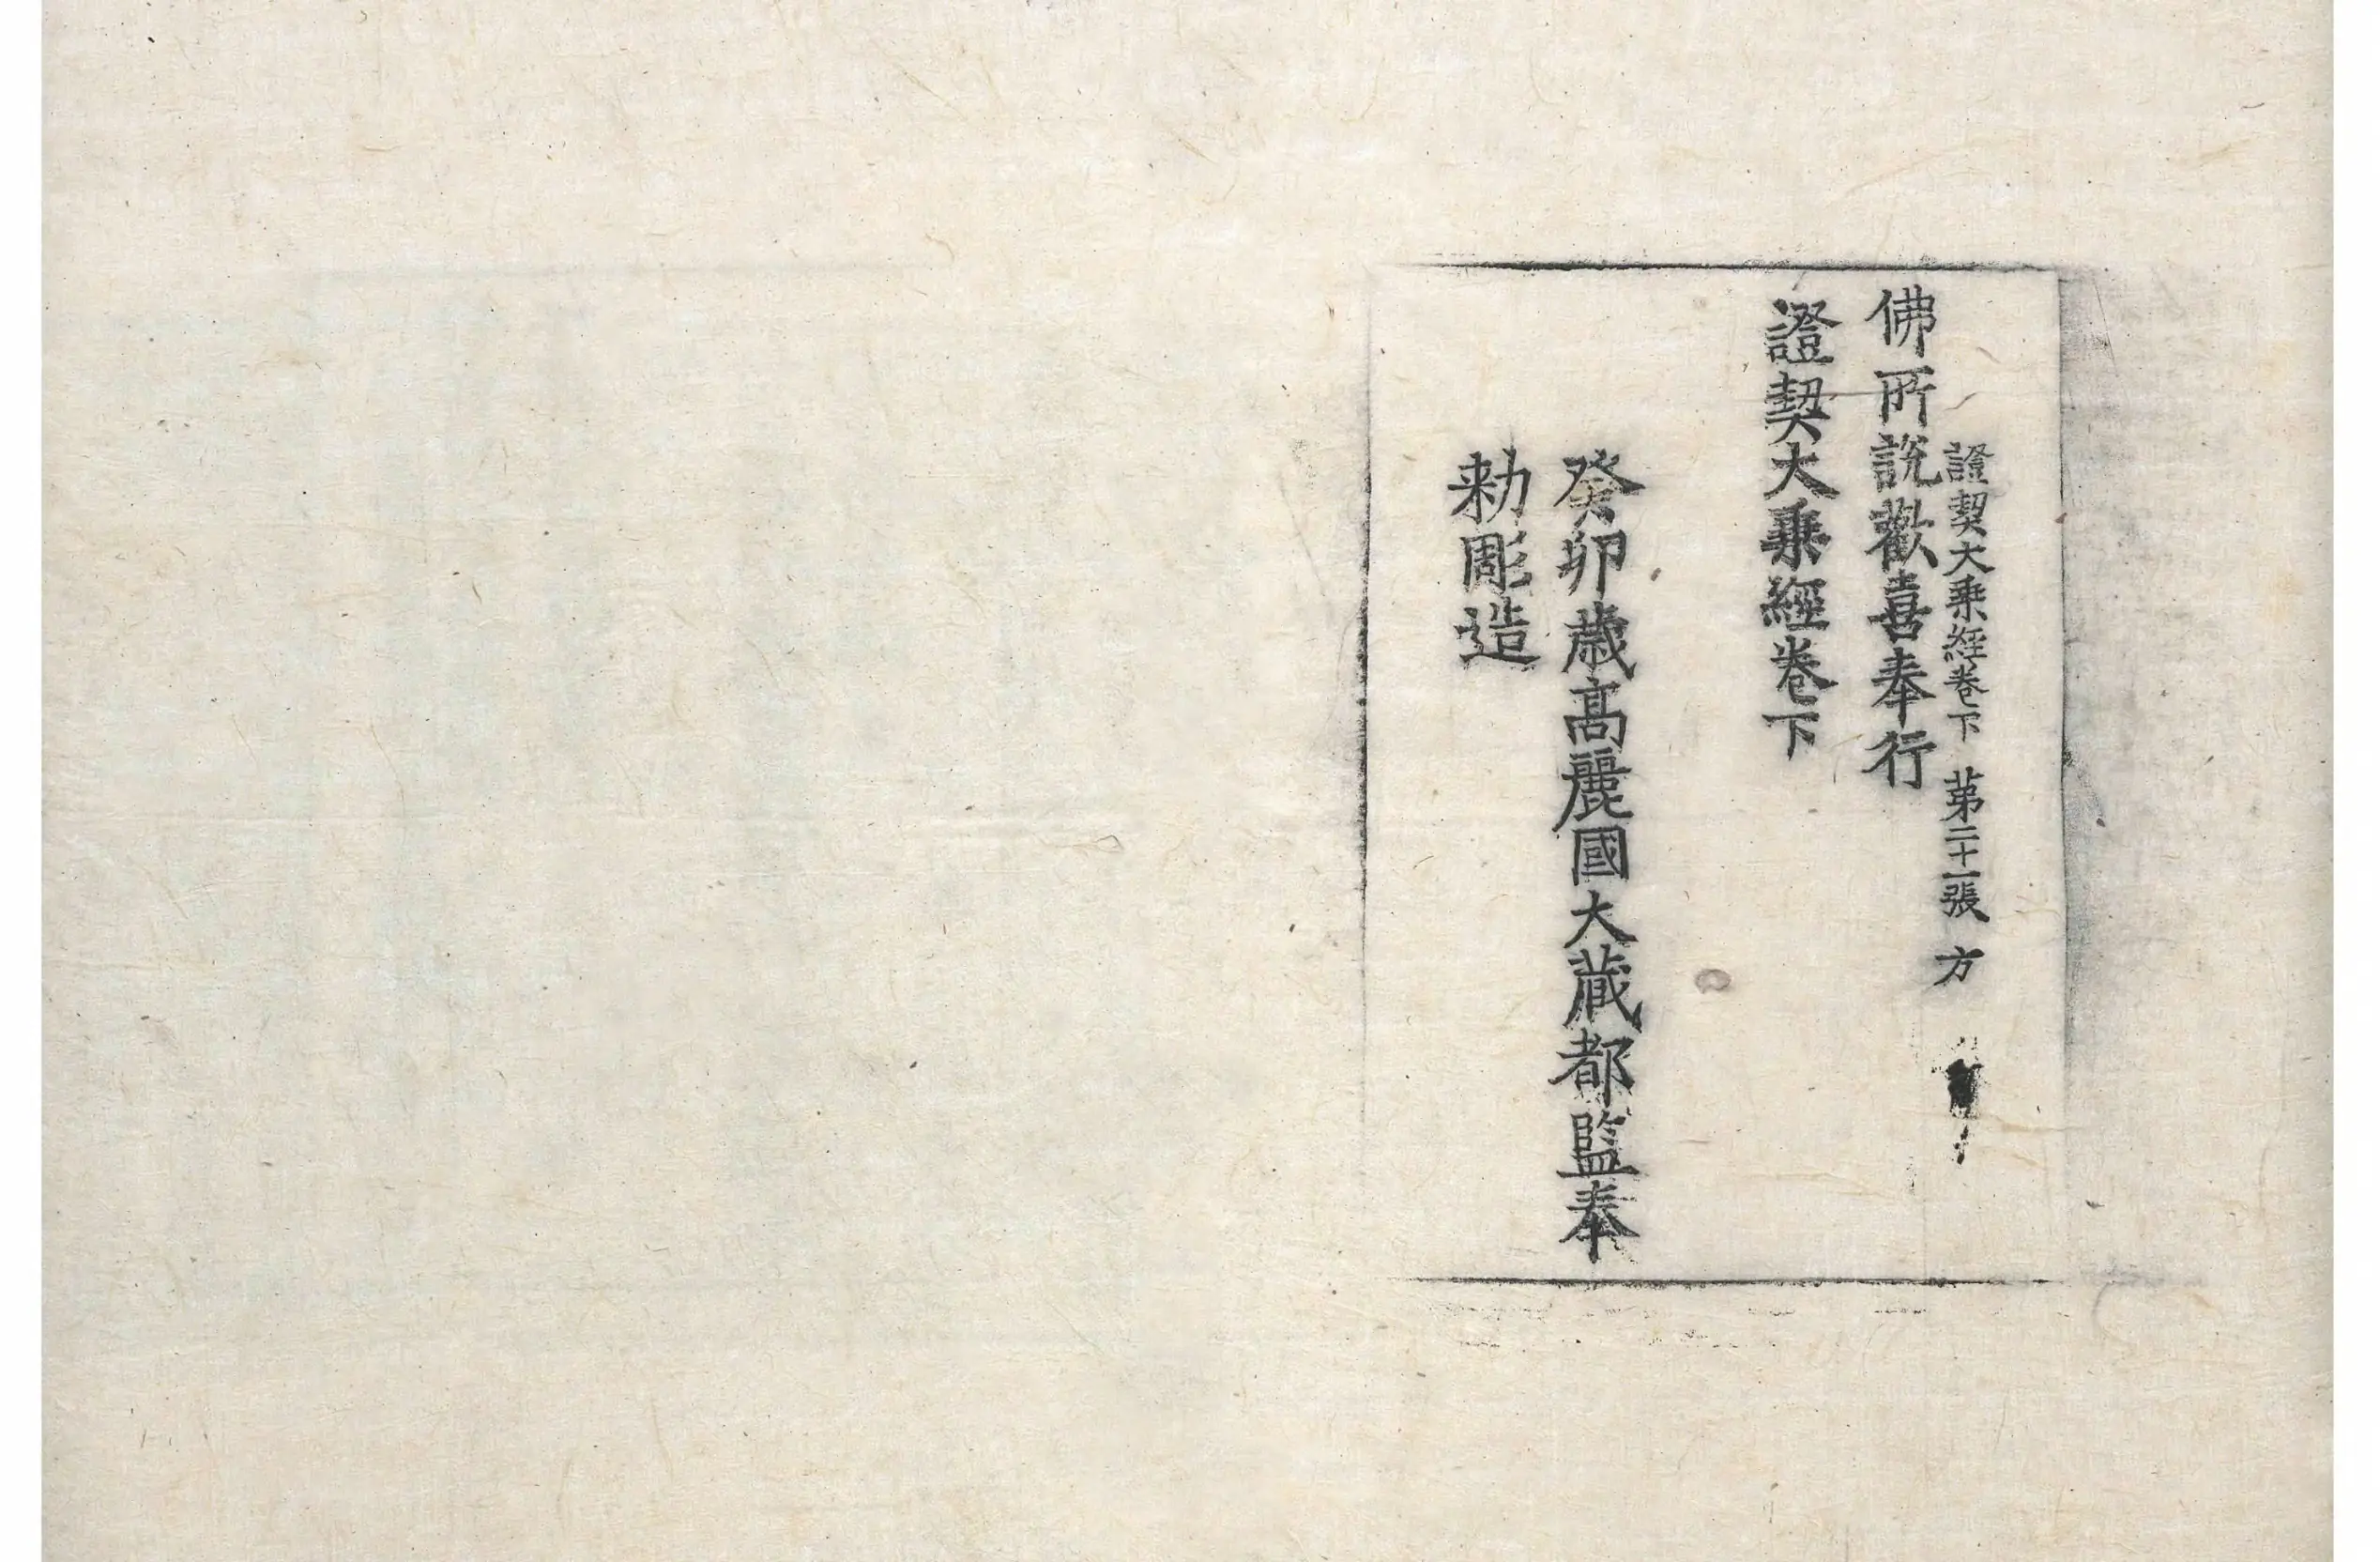 證契大乗經卷下 苐二十一張 方
佛所說歡喜奉行
證契大乗經卷下
癸卯歳髙麗國大藏都監奉
勑彫造